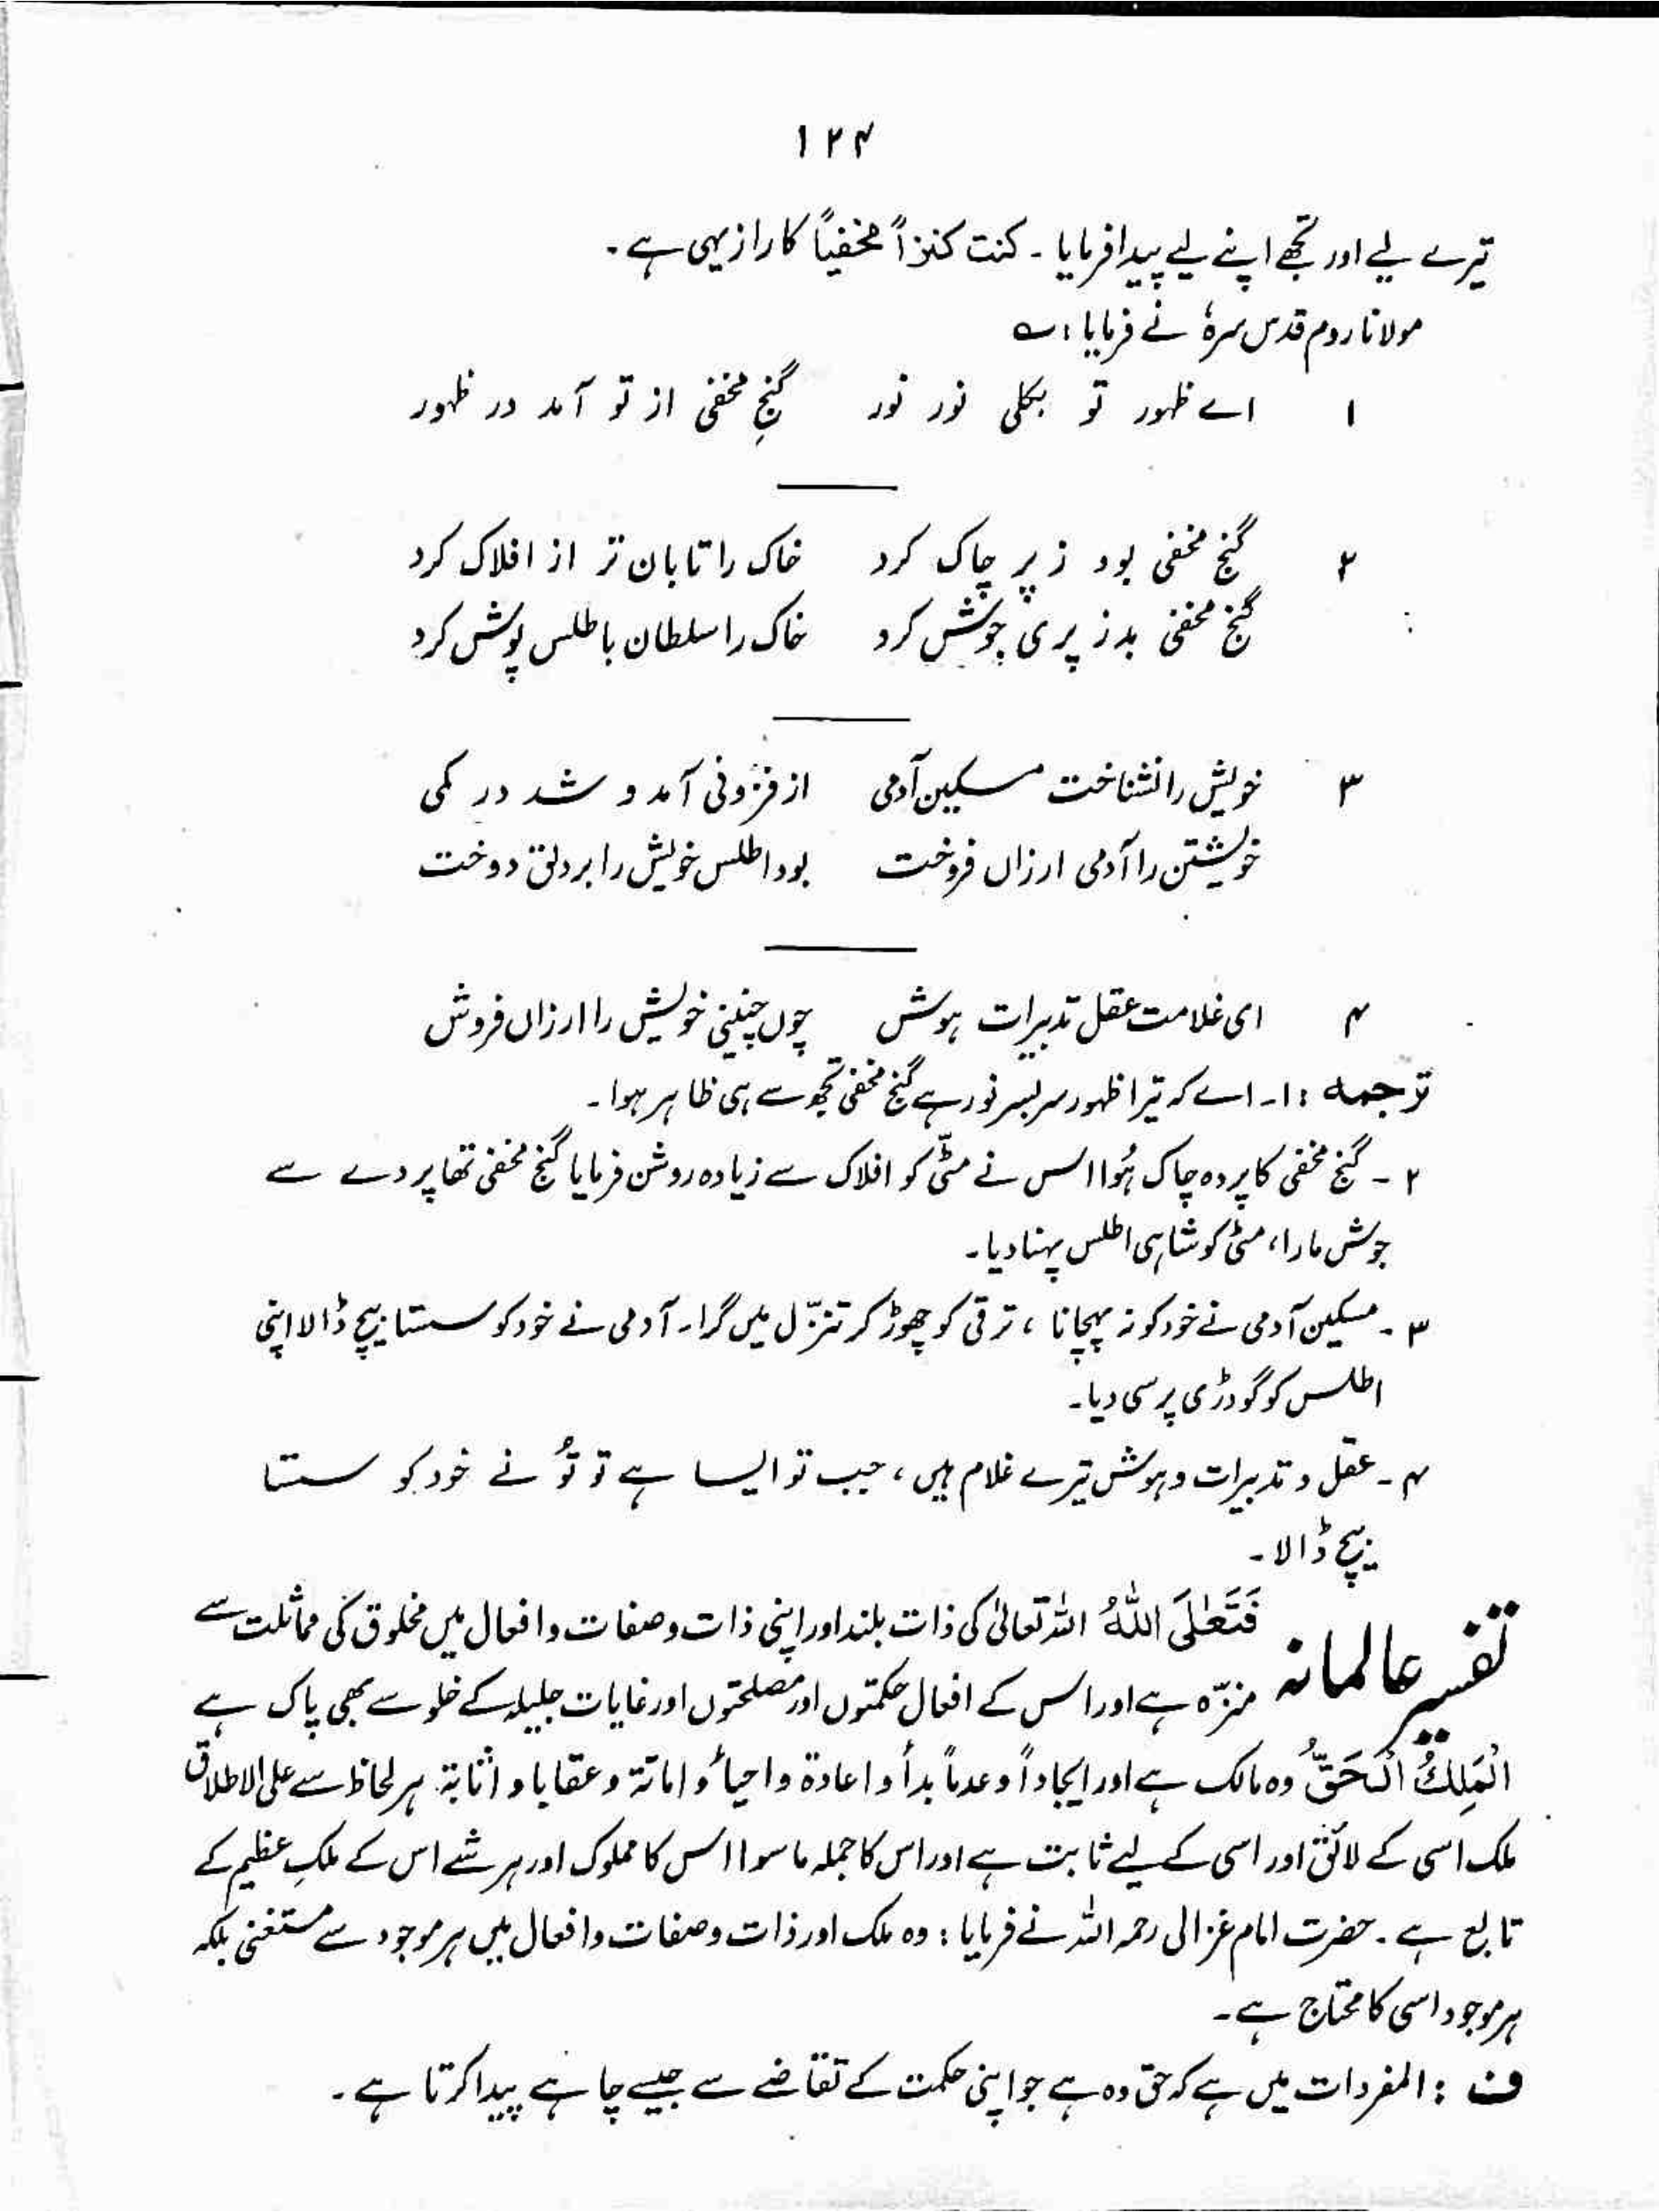 ۱۲۴
تیرے لیے اور تجھے اپنے لیے پیدا فرمایا ۔ کنت کنزاً مخفیاً کا راز یہی ہے ۔
مولانا روم قدس سرہٗ نے فرمایا : ؎
۱ اے ظہور تو بکلی نور نور گنجِ مخفی از تو آمد در ظہور
۲ گنج مخفی بود ز پر چاک کرد خاک را تابان تر از افلاک کرد
گنج مخفی بدز پری جوش کرد خاک را سلطان باطلس پوش کرد
۳ خویش را نشناخت مسکین آدمی از فزونی آمد و شد در کمی
خویشتن را آدمی ارزاں فروخت بود اطلس خویش را بر دلق دوخت
۴ ای غلامت عقل تدبیرات ہوش چوں چنینی خویش را ارزاں فروش
ترجمہ : ۱۔ اے کہ تیرا ظہور سربسر نور ہے گنج مخفی تجھ سے ہی ظاہر ہوا ۔
۲ ۔ گنج مخفی کا پردہ چاک ہُوا اس نے مٹّی کو افلاک سے زیادہ روشن فرمایا گنج مخفی تھا پردے سے
جوش مارا ، مٹی کو شاہی اطلس پہنا دیا ۔
۳ ۔ مسکین آدمی نے خود کو نہ پہچانا ، ترقی کو چھوڑ کر تنزّل میں گرا ۔ آدمی نے خود کو سستا بیچ ڈالا اپنی
اطلس کو گودڑی پر سی دیا ۔
۴ ۔ عقل و تدبیرات و ہوش تیرے غلام ہیں ، جب تو ایسا ہے تو تُو نے خود کو سستا
بیچ ڈالا ۔
تفسیر عالمانہ فَتَعٰلَی اللّٰہُ اللہ تعالیٰ کی ذات بلند اور اپنی ذات و صفات و افعال میں مخلوق کی مماثلت سے
منزّہ ہے اور اس کے افعال حکمتوں اور مصلحتوں اور غایات جلیلہ کے خلو سے بھی پاک ہے
الْمَلِكُ الْحَقُّ وہ مالک ہے اور ایجاداً و عدماً بدأ و اعادۃ و احیاً و اماتۃ و عقابا و اثابۃ ہر لحاظ سے علی الاطلاق
ملک اسی کے لائق اور اسی کے لیے ثابت ہے اور اس کا جملہ ماسوا اس کا مملوک اور ہر شے اس کے ملکِ عظیم کے
تابع ہے ۔ حضرت امام غزالی رحمہ اللہ نے فرمایا : وہ ملک اور ذات و صفات و افعال میں ہر موجود سے مستغنی بلکہ
ہر موجود اسی کا محتاج ہے ۔
ف : المفردات میں ہے کہ حق وہ ہے جو اپنی حکمت کے تقاضے سے جیسے چاہے پیدا کرتا ہے ۔